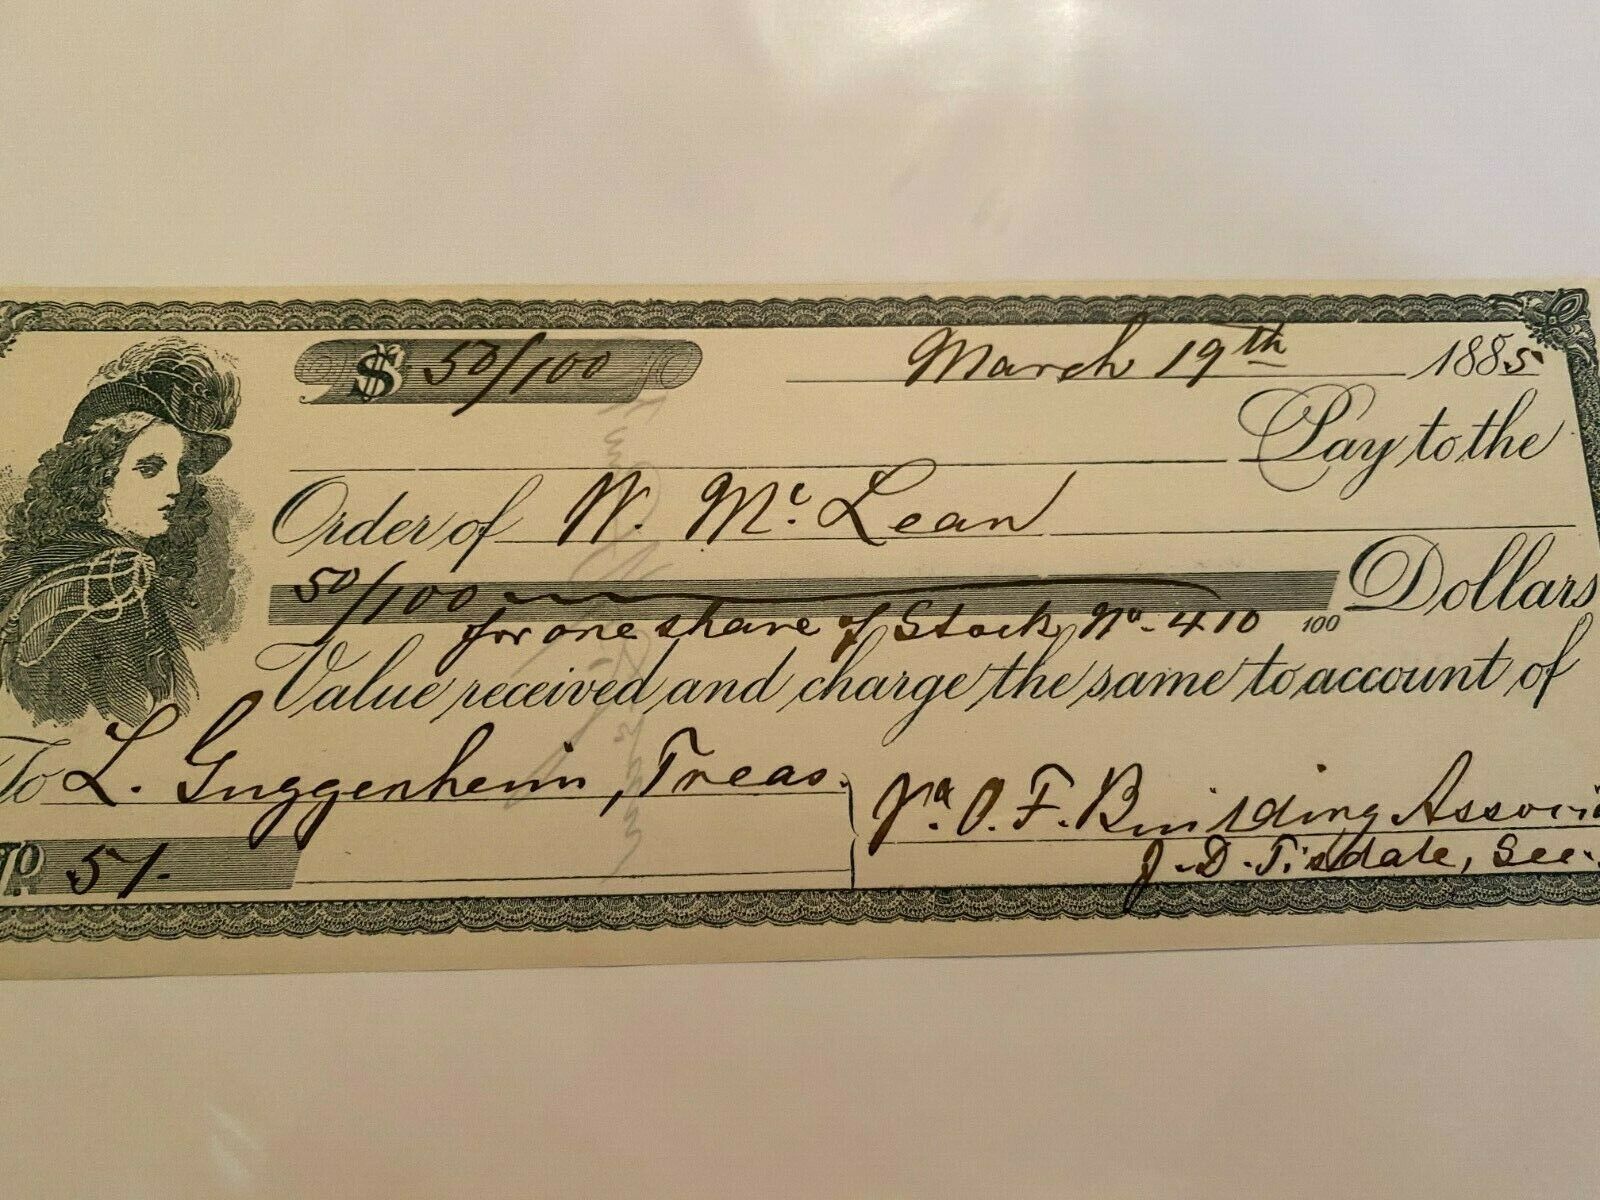 $ 50/100
March 19th 1885
Pay to the
Order of W. Mc. Lean
50/100 Dollars
for one share of Stock No. 410 100
Value received and charge the same to account of
To L. Guggenheim, Treas.
Va. O. F. Building Associa
J. D. Tisdale, Sec.
No 51.